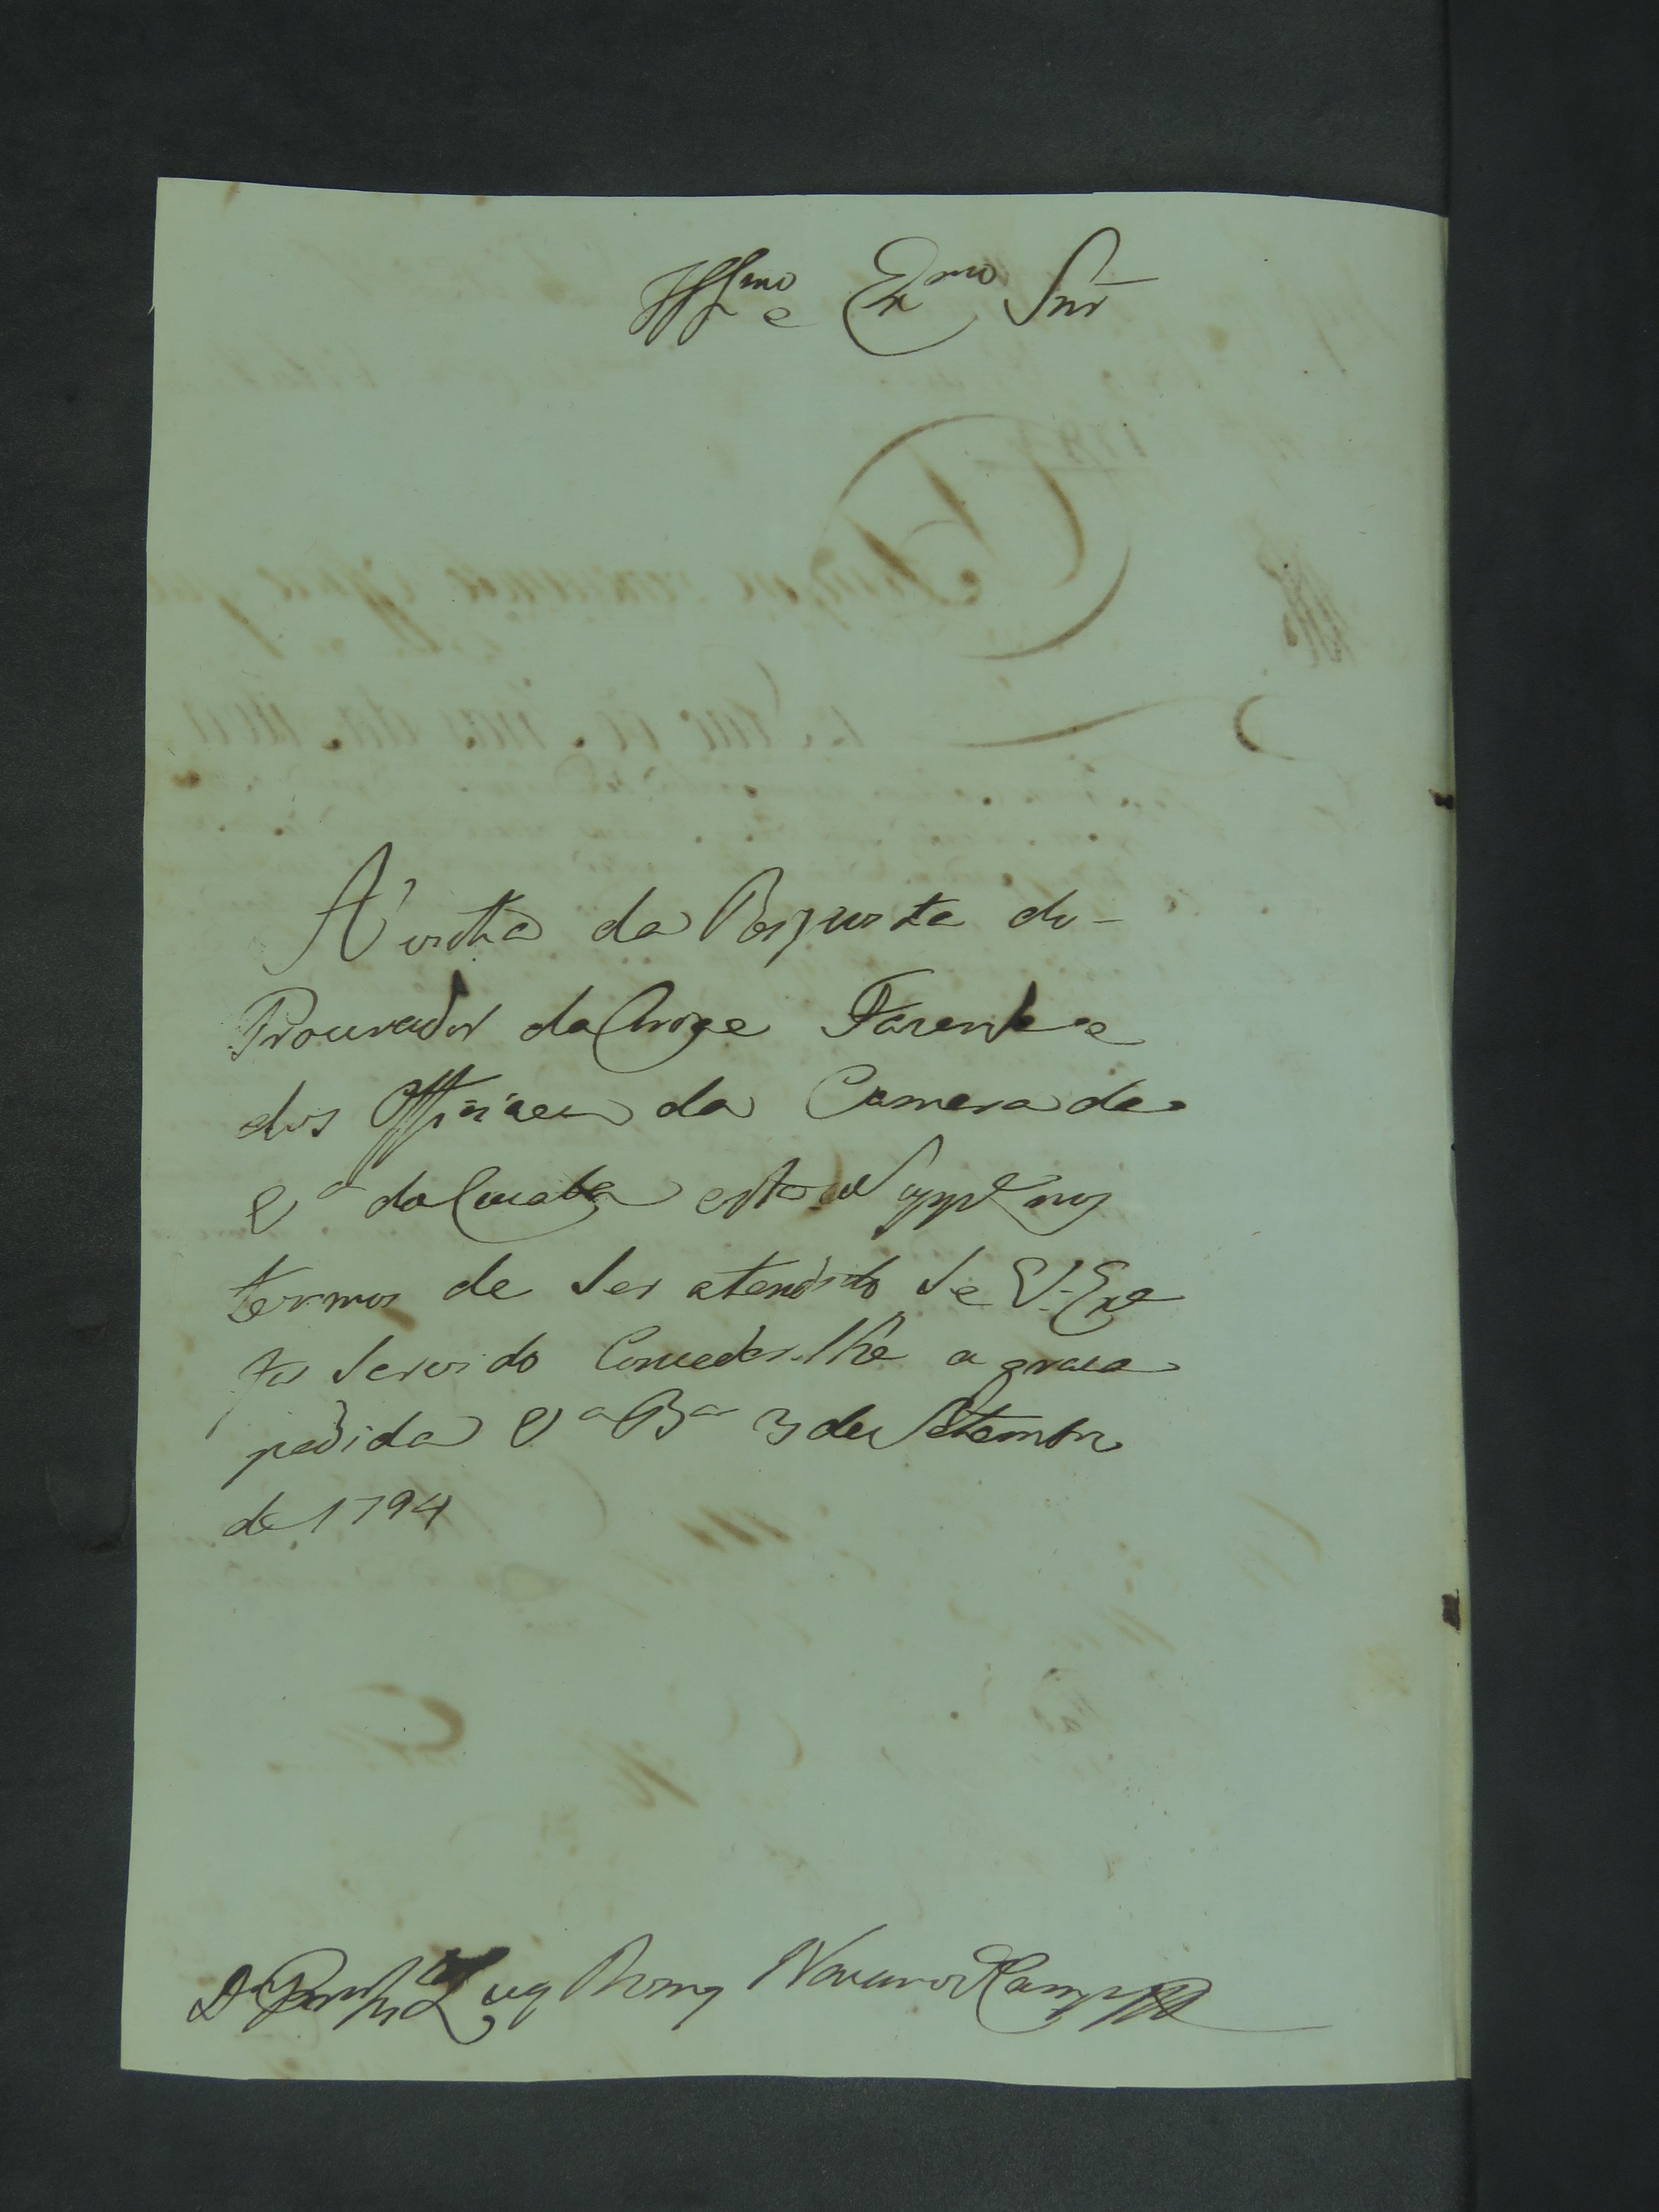 Illmo e Exmo Snr
A' vista da Resposta do-
Procurador da Croa e Fazenda e
dos Officiaes da Camera da
Va do Cuiabá está o Suppe nos
termos de ser atendido se V. Exa
for servido Conceder-lhe a graca
pedida Va Ba 3 de Setembro
de 1794
Navarro